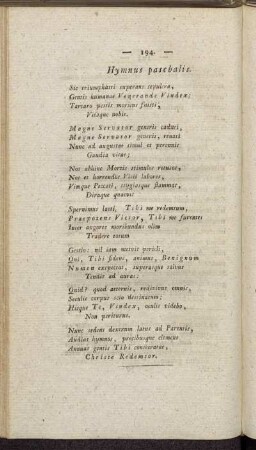 — 194. —
Hymnus paschalis.
Sic triumphasti superans sepulcra,
Gentis humanae Venerande Vindex;
Tartara pestis moriens fuisti,
Vitaque nobis.
Magne Servator generis caduci,
Magne Servator generis, renati
Nunc ad augustos simul et perennis
Gaudia vitae;
Nos ubique Mortis stimulos
Nos et horrendae labores,
flammas,
Diraque
Spernimus laeti, Tibi me redemtum,
Praepotens Victor, Tibi me
Inter angores moribundus olim
Tradere
nil iam metuit pericli,
Qui, Tibi fidens, animus, Benignum
Numen exspectat, superasque
Tendit ad auras:
Quid? quod aeternis, rediviene omnis,
Saeculis corpus
Hisque Te, Vindex, oculis videbo,
Non periturus.
Nunc sedens dextrum latus ad Parentis,
Audias hymnos, precibusque clemens
Annuas gentis Tibi consecratae,
Christe Redemtor.